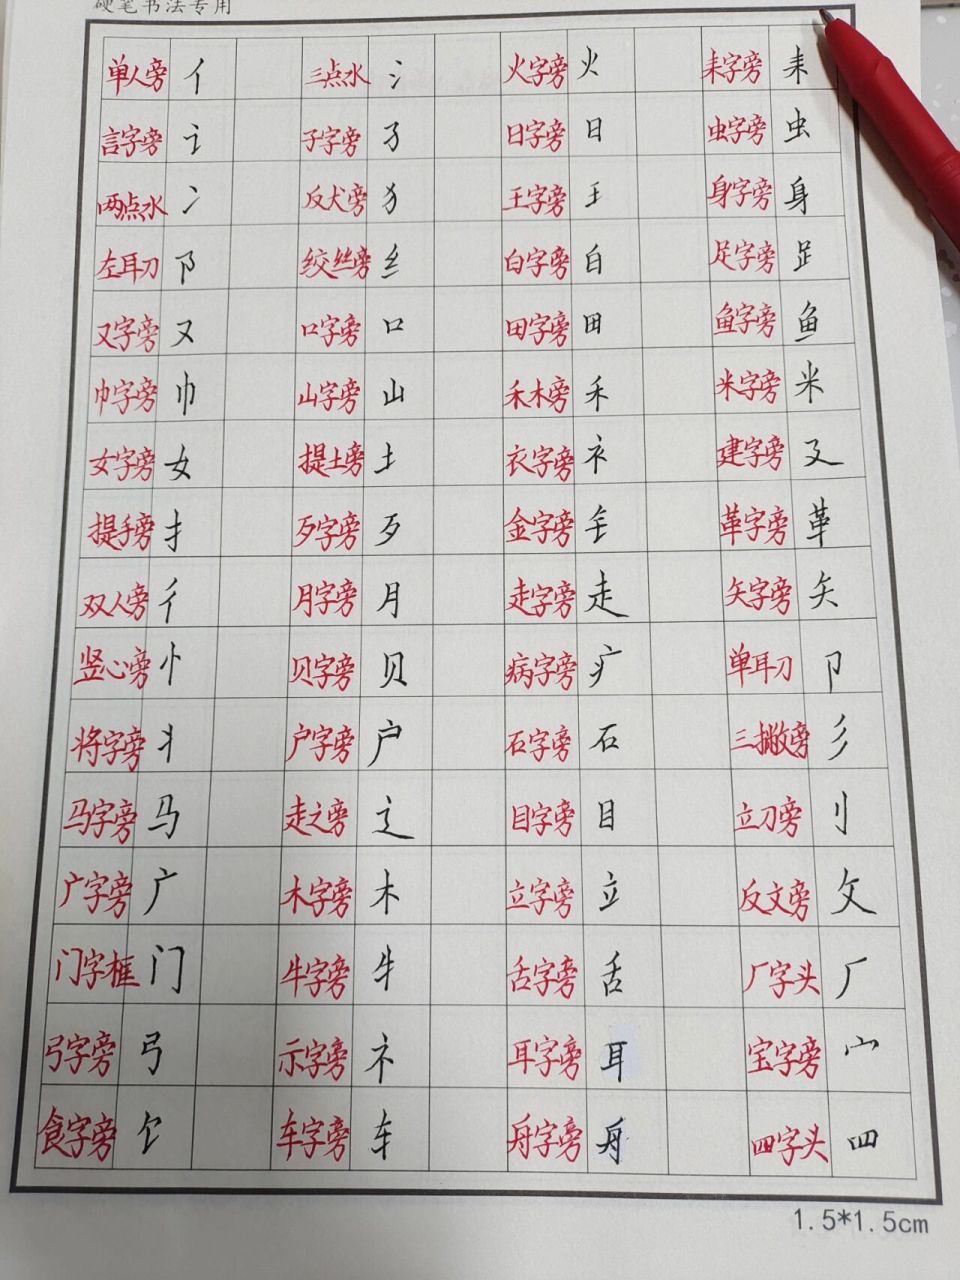 硬笔书法专用
单人旁 亻 三点水 氵 火字旁 火 耒字旁 耒
言字旁 讠 子字旁 孑 日字旁 日 虫字旁 虫
两点水 冫 反犬旁 犭 王字旁 王 身字旁 身
左耳刀 阝 绞丝旁 纟 白字旁 白 足字旁 𧾷
又字旁 又 口字旁 口 田字旁 田 鱼字旁 鱼
巾字旁 巾 山字旁 山 禾木旁 禾 米字旁 米
女字旁 女 提土旁 土 衣字旁 衤 建字旁 廴
提手旁 扌 歹字旁 歹 金字旁 钅 革字旁 革
双人旁 彳 月字旁 月 走字旁 走 矢字旁 矢
竖心旁 忄 贝字旁 贝 病字旁 疒 单耳刀 卩
将字旁 丬 户字旁 户 石字旁 石 三撇旁 彡
马字旁 马 走之旁 辶 目字旁 目 立刀旁 刂
广字旁 广 木字旁 木 立字旁 立 反文旁 攵
门字框 门 牛字旁 牜 舌字旁 舌 厂字头 厂
弓字旁 弓 示字旁 礻 耳字旁 耳 宝字旁 宀
食字旁 饣 车字旁 车 舟字旁 舟 四字头 四
1.5*1.5cm